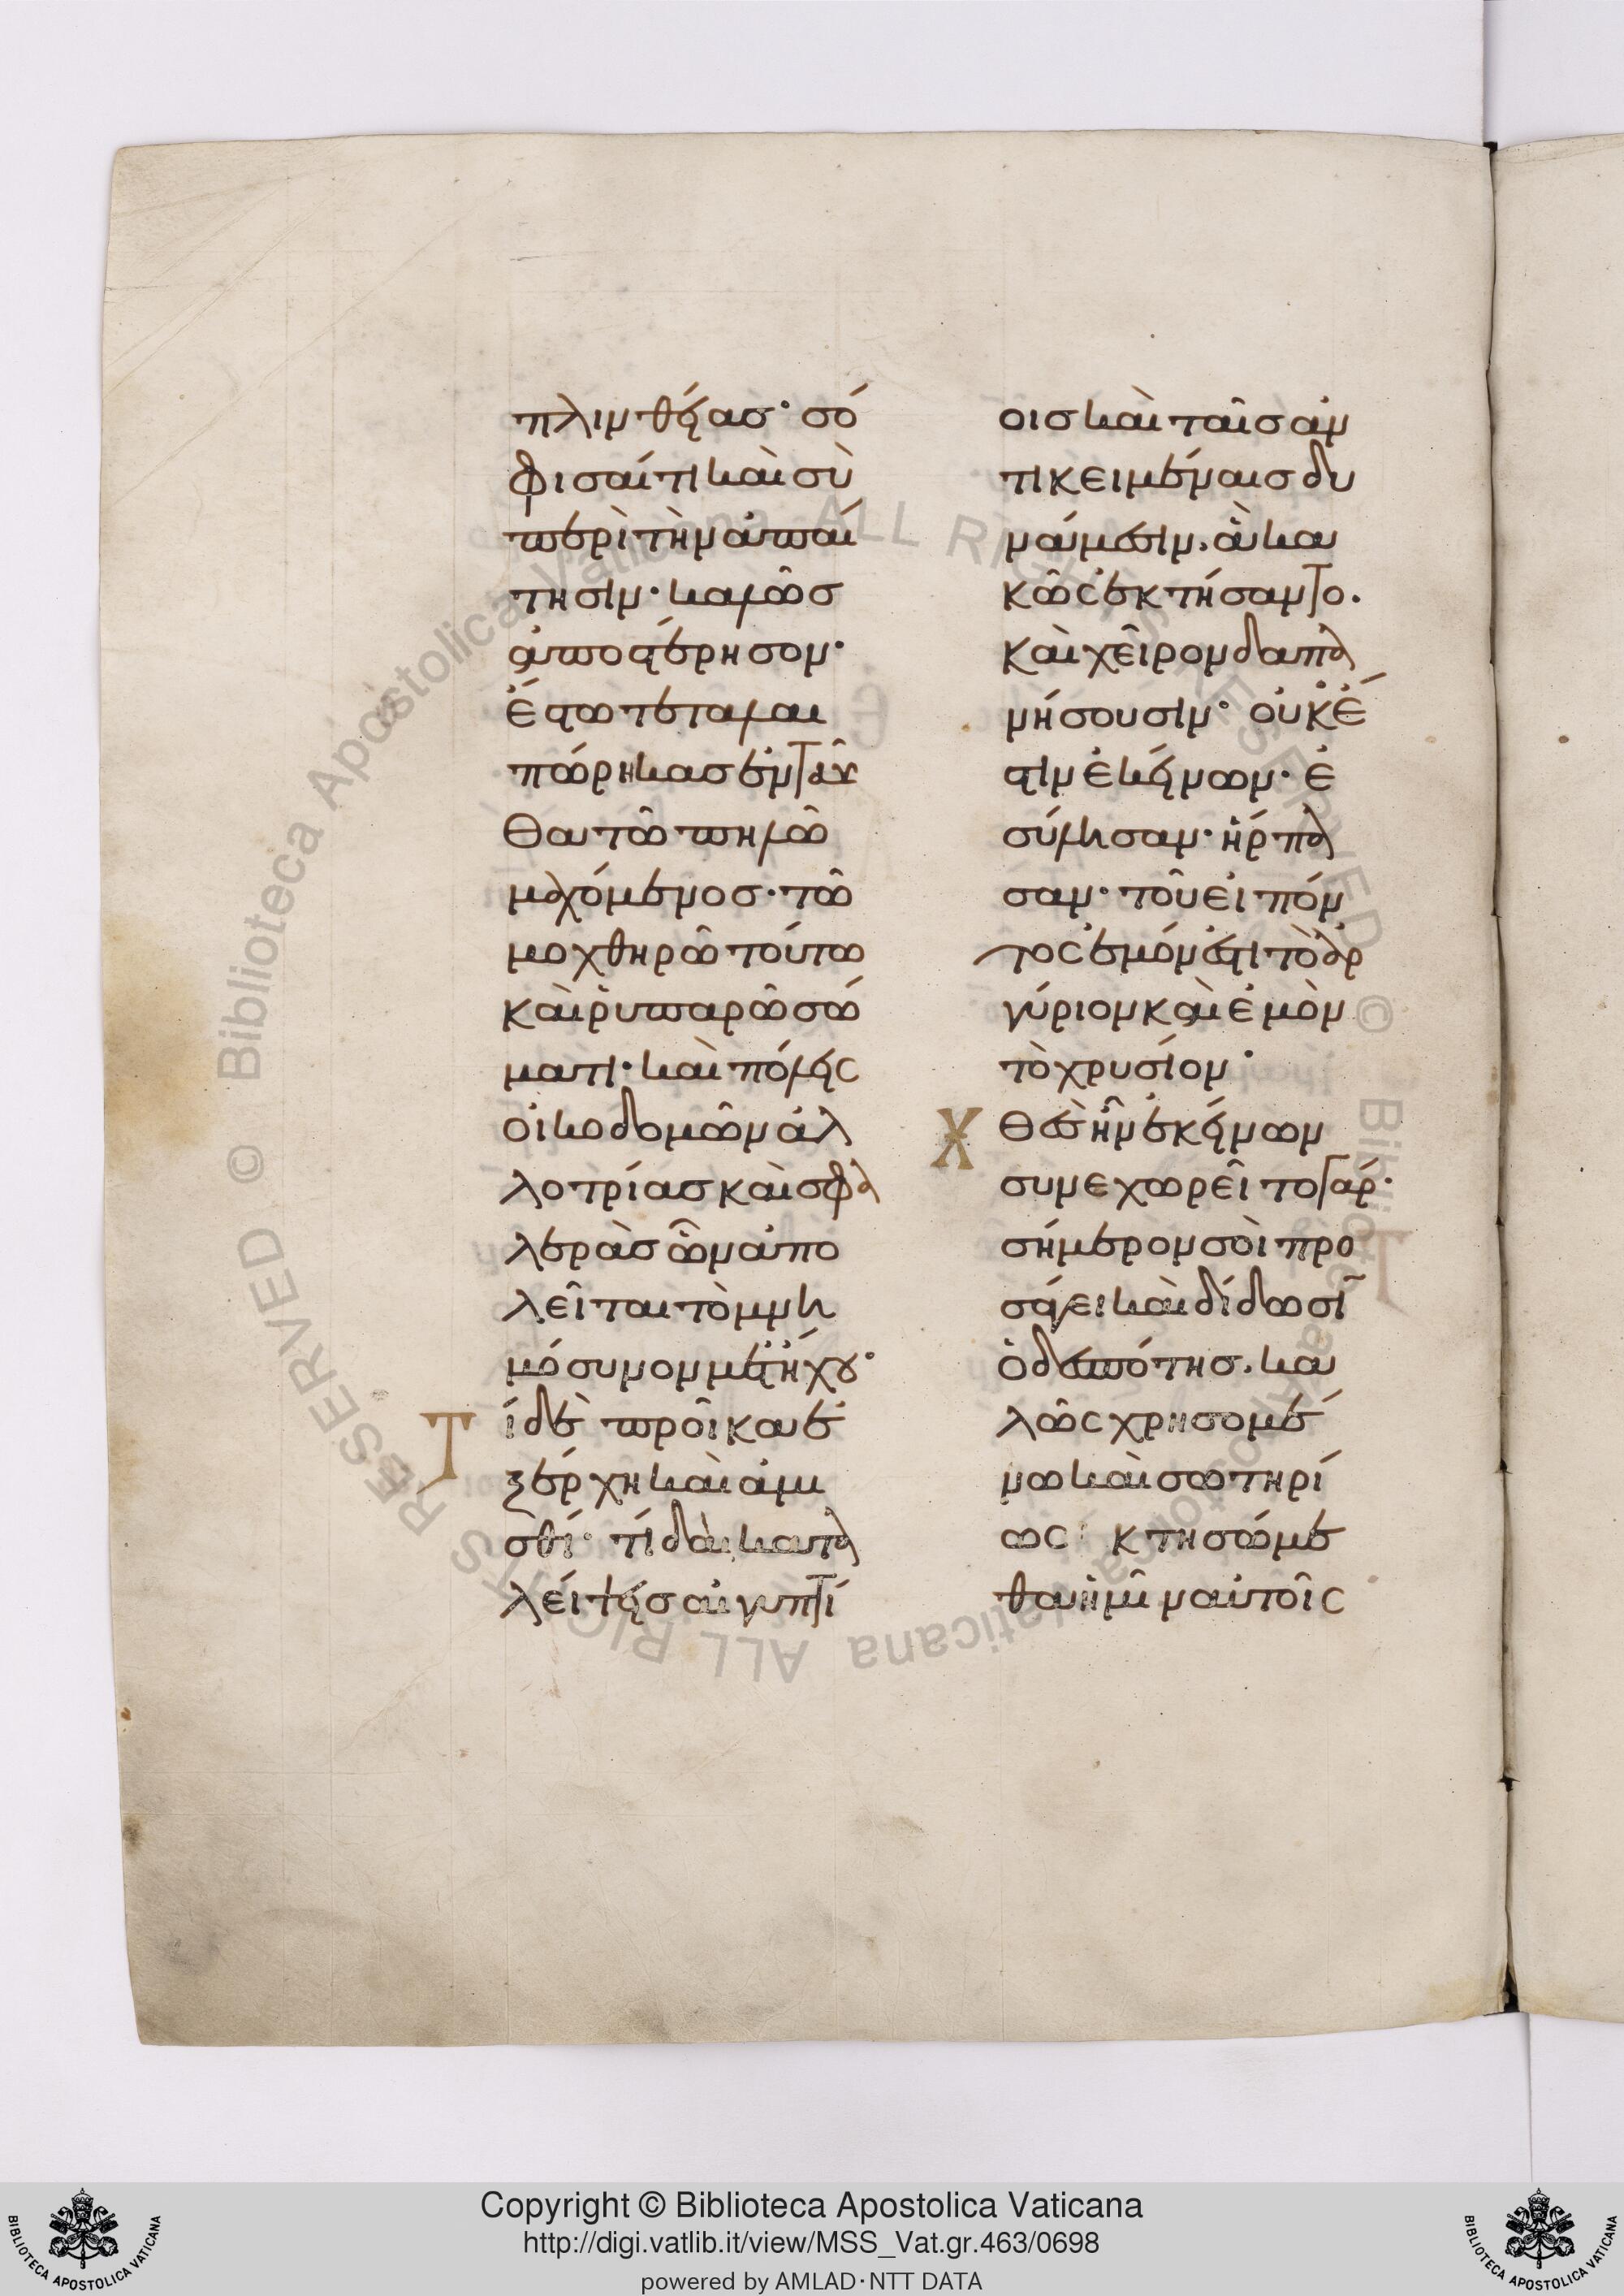 πλινθείας· σό
φισαί τι καὶ σὺ
περὶ τὴν ἀπαί
τησιν· καλῶς
ἀποστέρησον·
ἔστω τέταλαι
πώρηκας ἐνταῦ
θα τῶ πηλῶ
μαχόμενος· τῶ
μοχθηρῶ τούτω
καὶ ῥυπαρῶ σώ
ματι· καὶ πόλεις
οἰκοδομῶν ἀλ
λοτρίας καὶ σφα
λερὰς ὧν ἀπο
λεῖται τὸ μνη
μόσυνον μετ' ἤχου·
Τί δὲ προῖκα ἐ
ξέρχη καὶ ἀμι
σθί· τί δαὶ καταλ
λείψεις αἰγυπτί
οις καὶ ταῖς ἀν
τικειμέναις δυ
νάμεσιν. ἃ κα
κῶς ἐκτήσαντο.
καὶ χεῖρον δαπα
νήσουσιν· οὐκ ἔ
στιν ἐκείνων· ἐ
σύλησαν· ἥρπα
σαν· τοῦ εἰπόν
τος ἐμόν ἐστι τὸ ἀρ
γύριον καὶ ἐμὸν
τὸ χρυσίον·
Χθὲς ἦν ἐκείνων
συνεχωρεῖτο γάρ·
σήμερον σοὶ προ
σάγει καὶ δίδωσιν
ὁ δεσπότης. κα
λῶς χρησομέ
νω καὶ σωτηρί
ως κτησώμε
θα ἡμῖν αὐτοῖς
Copyright © Biblioteca Apostolica Vaticana
http://digi.vatlib.it/view/MSS_Vat.gr.463/0698
powered by AMLAD·NTT DATA
BIBLIOTECA APOSTOLICA VATICANA
BIBLIOTECA APOSTOLICA VATICANA
© Biblioteca Apostolica Vaticana ALL RIGHTS RESERVED © Biblioteca Apostolica Vaticana ALL RIGHTS RESERVED